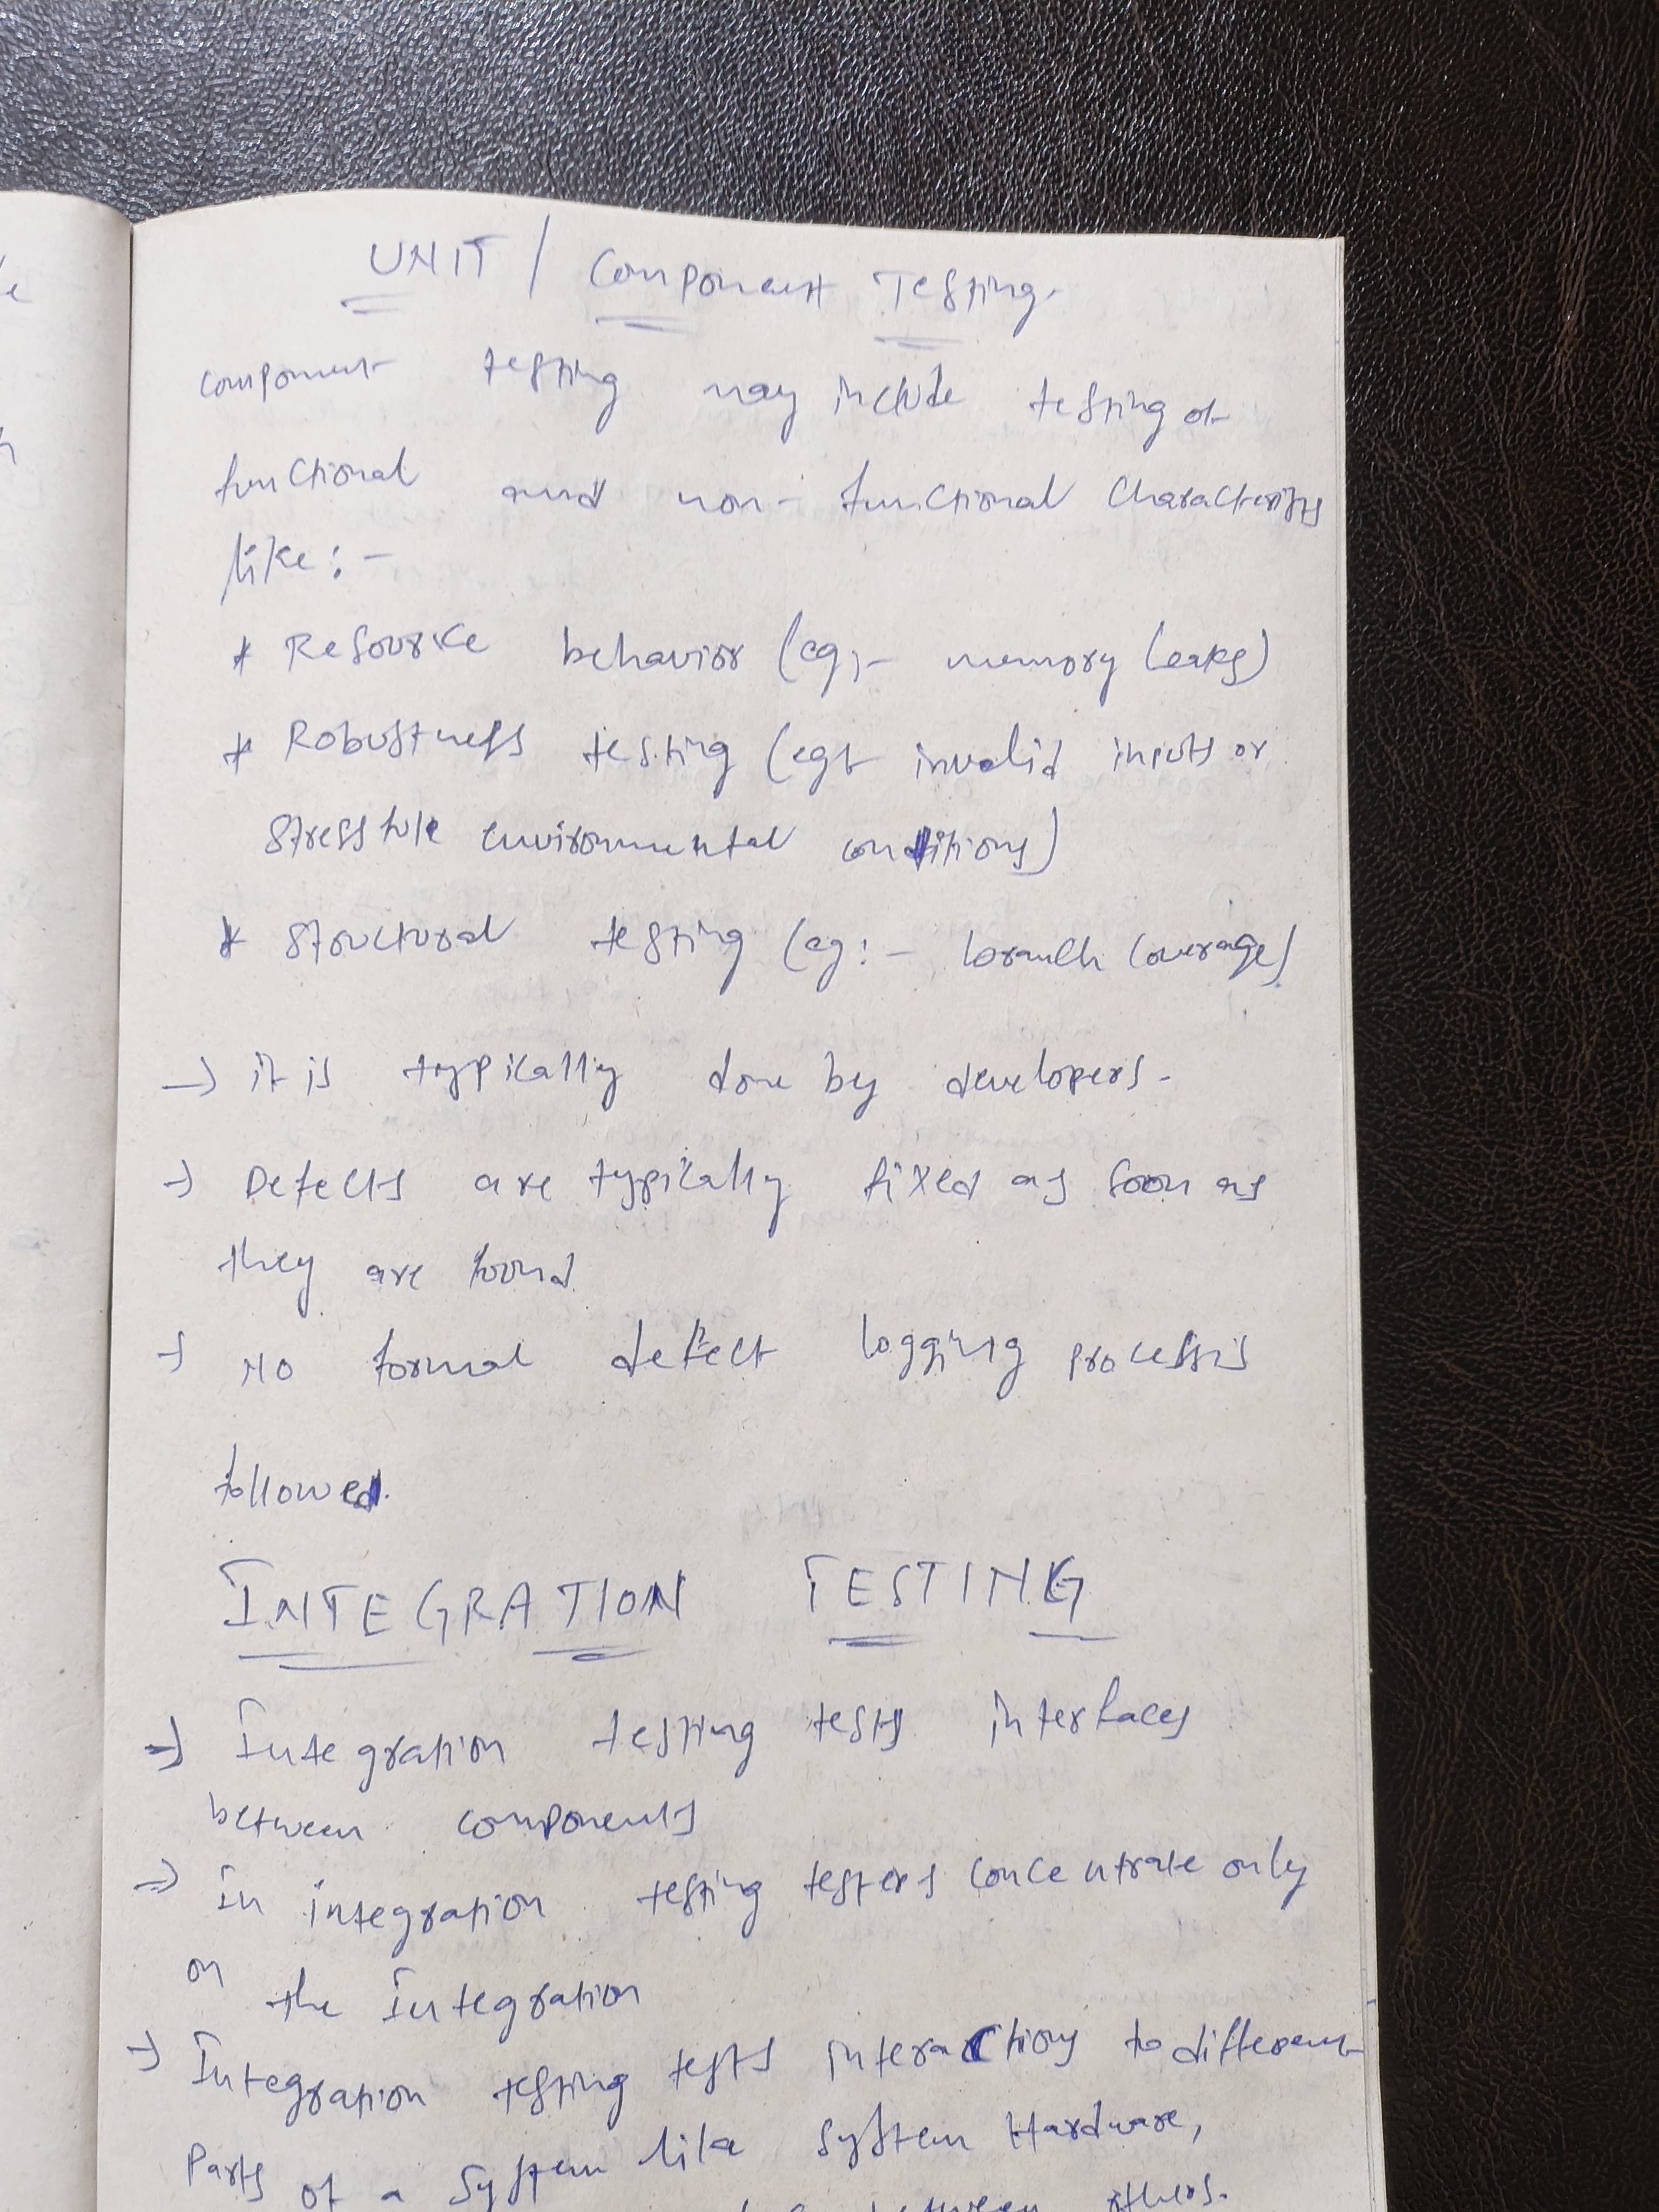 UNIT / Component Testing.
component testing may include testing of
functional and non-functional Characteristics
like:-
* Resource behavior (eg:- memory leaks)
* Robustness testing (eg:- invalid inputs or
stressful environmental conditions)
* Structural testing (eg:- branch coverage)
→ it is typically done by developers.
→ Defects are typically fixed as soon as
they are found
→ No formal defect logging process is
followed.
INTEGRATION TESTING
→ Integration testing tests interfaces
between components
→ In integration testing testers concentrate only
on the Integration
→ Integration testing tests interactions to different
Parts of a System like System Hardware,
between others.